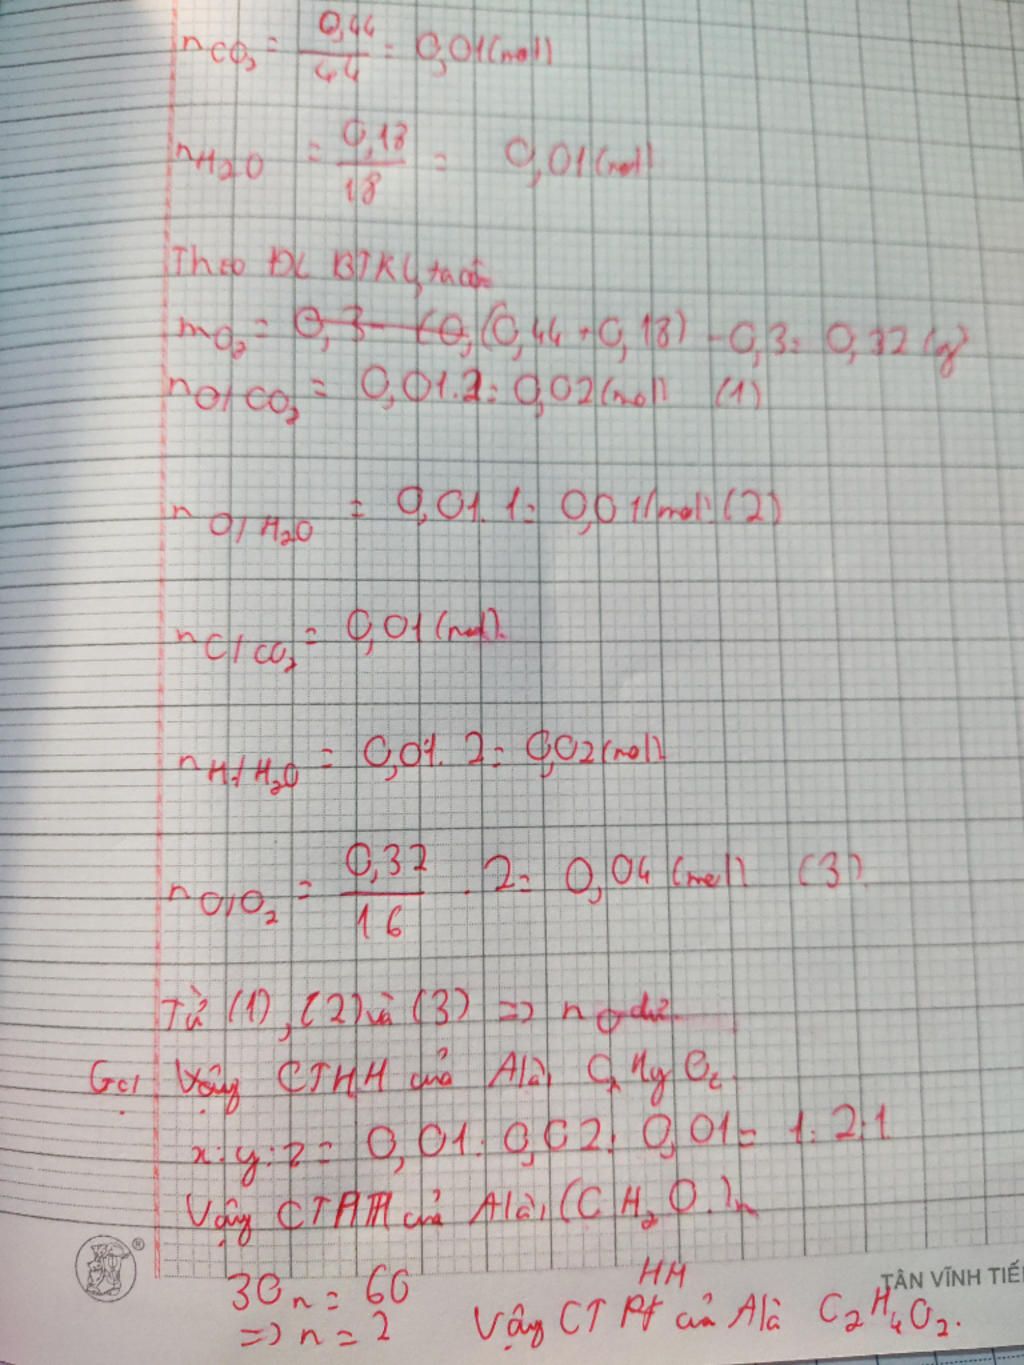 nCO2 = 0,44/44 = 0,01 (mol)
nH2O = 0,18/18 = 0,01 (mol)
Theo ĐL BTKL, ta có:
mO2 = 0,3 - (0, (0,44 + 0,18) - 0,3 = 0,32 (g)
nO/CO2 = 0,01.2 = 0,02 (mol) (1)
nO/H2O = 0,01.1 = 0,01 (mol) (2)
nC/CO2 = 0,01 (mol).
nH/H2O = 0,01.2 = 0,02 (mol)
nO/O2 = 0,32/16 . 2 = 0,04 (mol) (3).
Từ (1), (2) và (3) => nO dư
Gọi Vậy CTHH của A là, CxHyOz
x:y:z = 0,01:0,02:0,01 = 1:2:1
Vậy CTHH của A là, (CH2O)n
30n = 60
=> n = 2
HH
Vậy CT của A là C2H4O2.
TÂN VĨNH TIẾ
®